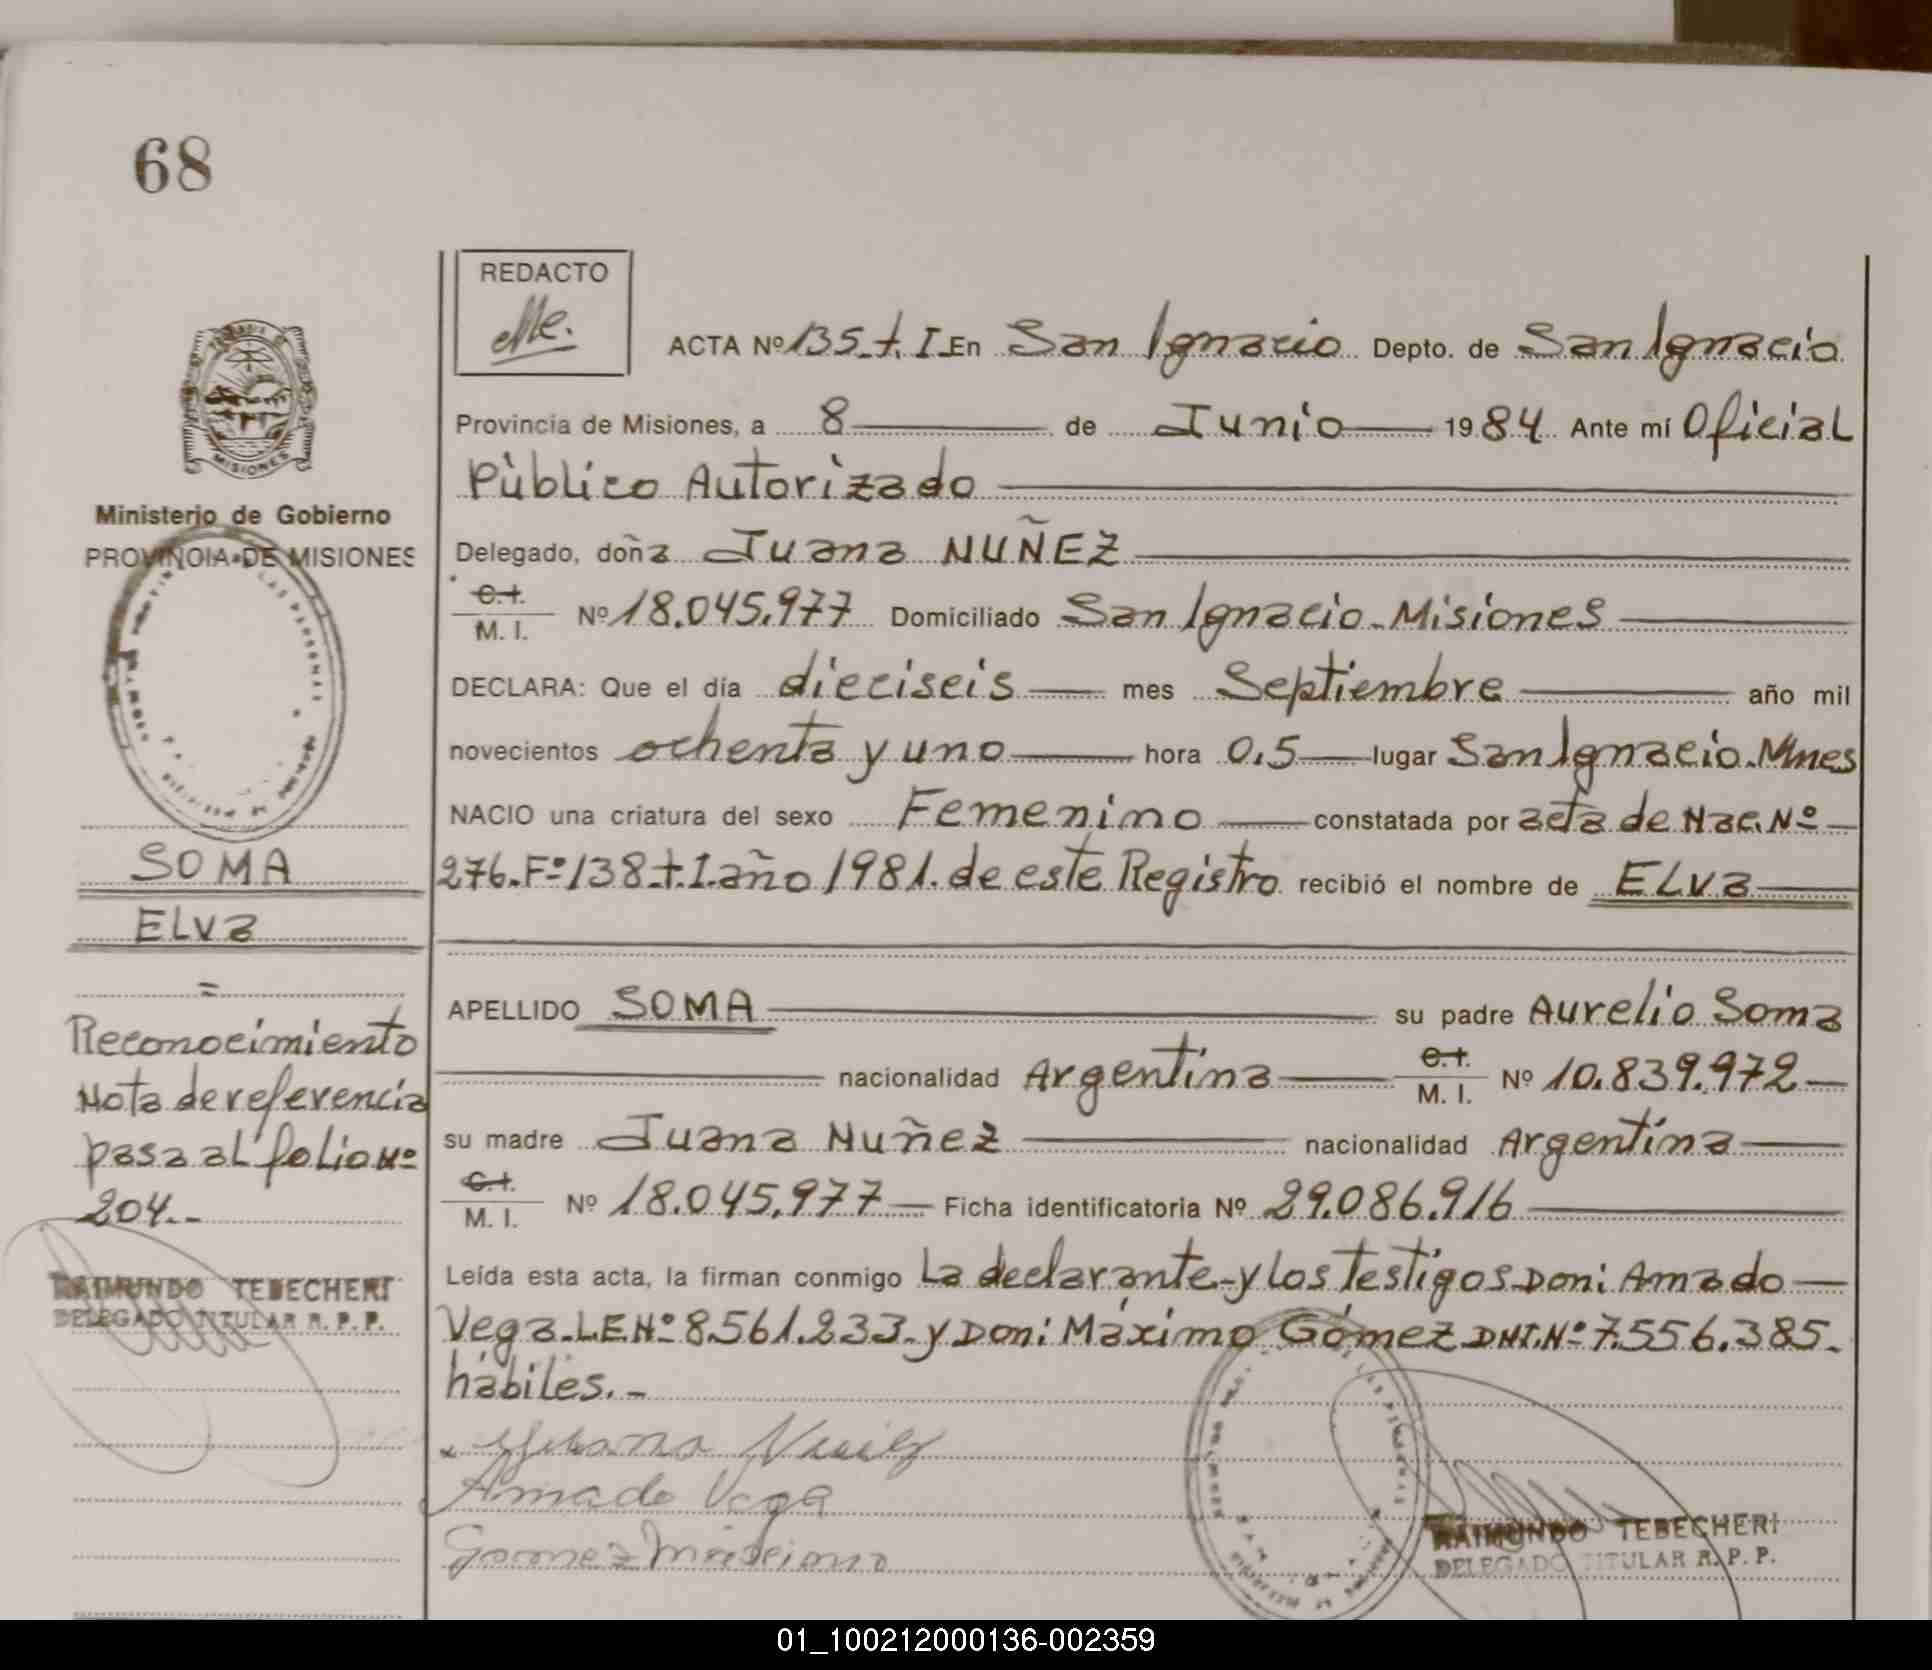 68
REDACTO
ACTA Nº 135.t. I. En San Ignacio Depto. de San Ignacio
Provincia de Misiones, a 8 de Junio 1984 Ante mí Oficial
Pùblico Autorizado
Delegado, doña Juana NUÑEZ
C.I.
M. I. Nº 18.045.977 Domiciliado San Ignacio - Misiones
DECLARA: Que el día dieciseis mes Septiembre año mil
novecientos ochenta y uno hora 0,5 lugar San Ignacio. Mnes
NACIO una criatura del sexo Femenino constatada por acta de Nac. Nº
276. Fº 138.t.I. año 1981. de este Registro recibió el nombre de ELVa
APELLIDO SOMA su padre Aurelio Soma
nacionalidad Argentina C.I. M. I. Nº 10.839.972
su madre Juana Nuñez nacionalidad Argentina
C.I.
M. I. Nº 18.045.977 Ficha identificatoria Nº 29.086.916
Leída esta acta, la firman conmigo La declarante y los Testigos Don: Amado
Vega. LE Nº 8.561.233. y Don: Máximo Gómez DNI. Nº 7.556.385.
hábiles.-
Juana Nuñez
Amado Vega
Gomez Maximo
RAIMUNDO TEBECHERI
DELEGADO TITULAR R. P. P.
MISIONES
Ministerio de Gobierno
PROVINCIA DE MISIONES
SOMA
ELVa
=
Reconocimiento
Nota de referencia
pasa al folio Nº
204.-
RAIMUNDO TEBECHERI
DELEGADO TITULAR R. P. P.
01_100212000136-002359